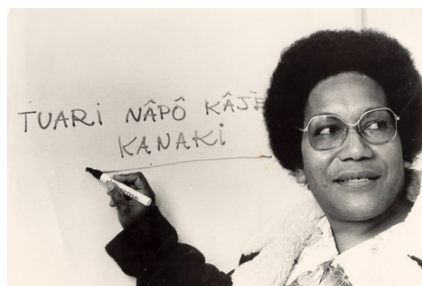 TUARi NÂPÔ KÂJÈ
KANAKi